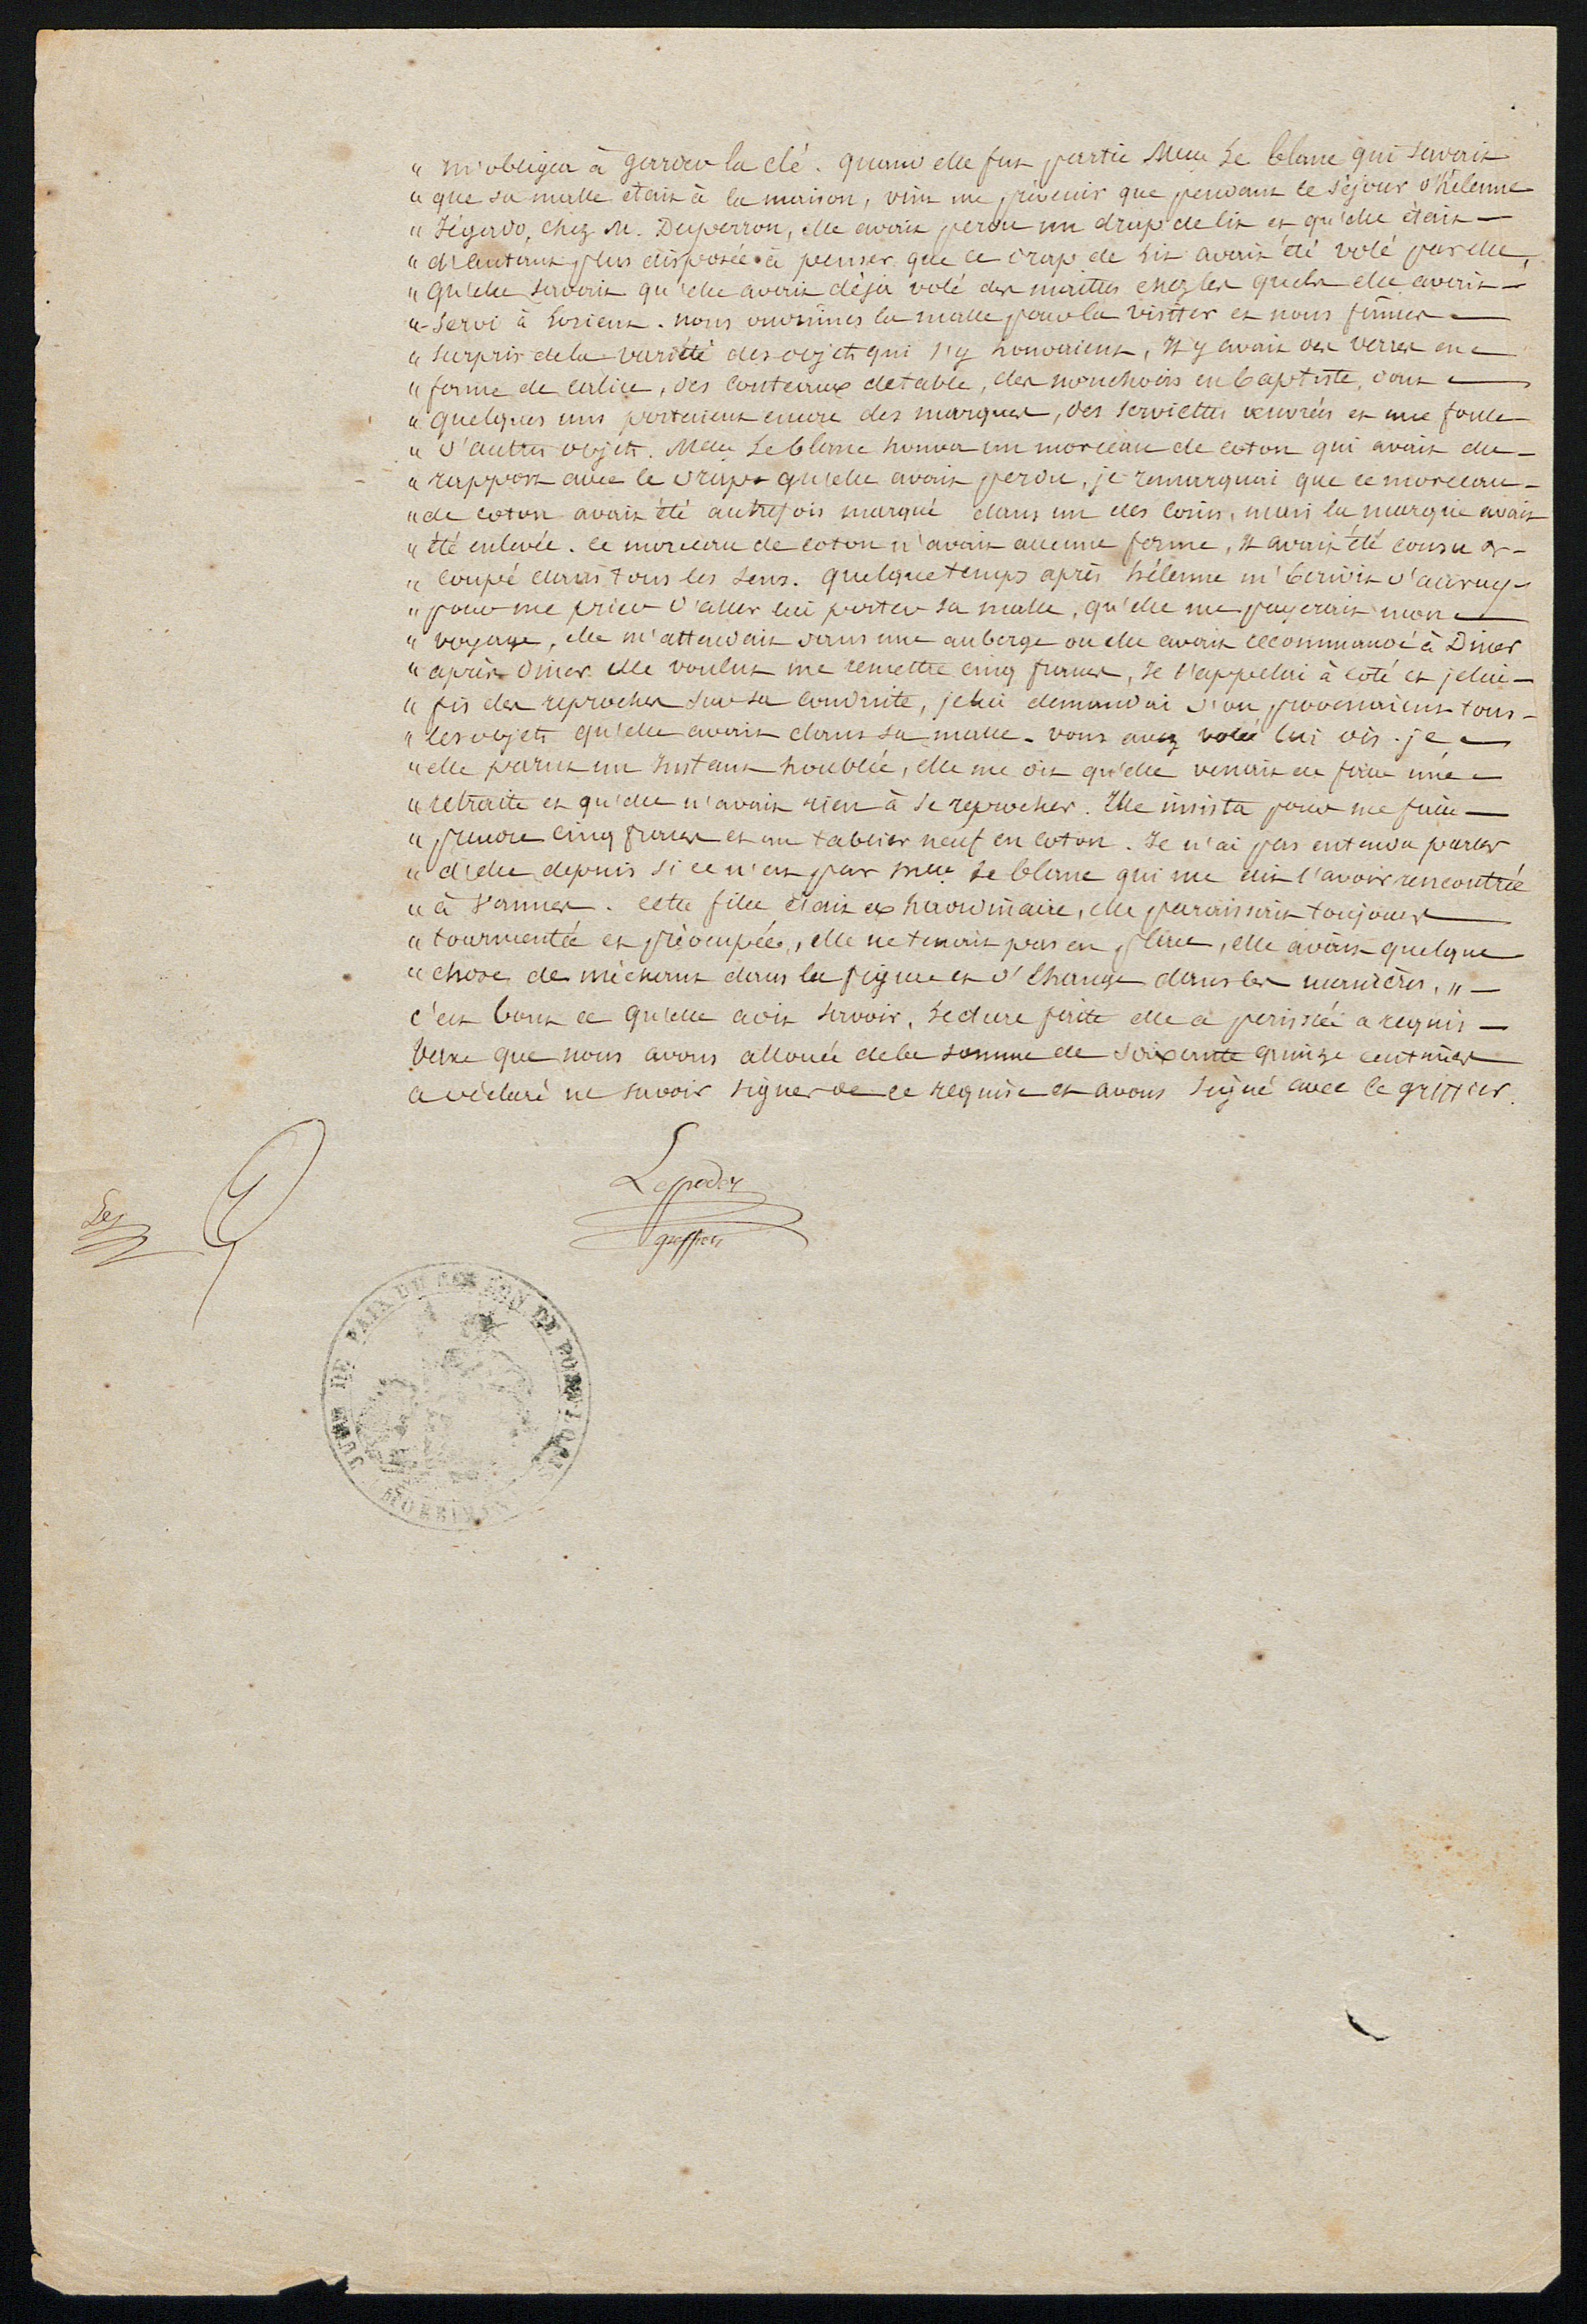 " m'obligea à garder la clé. quand elle fut partie Mme Le blanc qui savait
" que sa malle était à la maison, vint me prévenir que pendant le séjour d'hélenne
" Jégado, chez M. Duperron, elle avait perdu un drap de lit et qu'elle était —
" d'autant plus disposée à penser que ce drap de lit avait été volé par elle,
" qu'elle savait qu'elle avait déjà volé des maitres chez les quels elle avait —
" servi à Lorient. nous ouvrimes la malle pour la visitter et nous fûmes —
" surpris de la variété des objets qui s'y trouvaient, Il y avait des verres en —
" forme de calice, des couteaux de table, des mouchoirs en baptiste, dont —
" quelques uns portaient encore des marques, des serviettes ouvrées et une foule
" d'autres objets. Mme Le blanc trouva un morceau de coton qui avait du —
" rapport avec le drap qu'elle avait perdu, je remarquai que ce morceau —
" de coton avait été autrefois marqué dans un des coins, mais la marque avait
" été enlevée. ce morceau de coton n'avait aucune forme, Il avait été cousu &
" coupé dans tous les sens. quelque temps après hélenne m'écrivit d'auray
" pour me prier d'aller lui porter sa malle, qu'elle me payerait mon —
" voyage, elle m'attendait dans une auberge ou elle avait recommandé à Diner
" après diner elle voulut me remettre cinq francs, Je l'appelai à coté et je lui —
" fis des reproches sur sa conduite, je lui demandai d'ou provenaient tous —
" les objets qu'elle avait dans sa malle. vous avez volé lui dis-je —
" elle parut un Instant troublée, elle me dit qu'elle venait de faire une —
" retraite et qu'elle n'avait rien à se reprocher. Elle insista pour me faire —
" prendre cinq francs et un tablier neuf en coton. Je n'ai pas entendu parler
" d'elle depuis si ce n'est par Mme Le blanc qui me dit l'avoir rencontrée
" à Vannes. cette fille était extraordinaire, elle paraissait toujours —
" tourmentée et préoccupée, elle ne tenait pas en place, elle avait quelque
" chose de méchant dans la figure et d'Etrange dans les manières. " —
c'est tout ce qu'elle a dit savoir. Lecture faite elle a persisté a requis —
taxe que nous avons allouée de la somme de soixante quinze centimes
a déclaré ne savoir signer de ce requise et avons signé avec le greffier.
greffier
JUGE DE PAIX DU CANTON DE
MORBIHAN